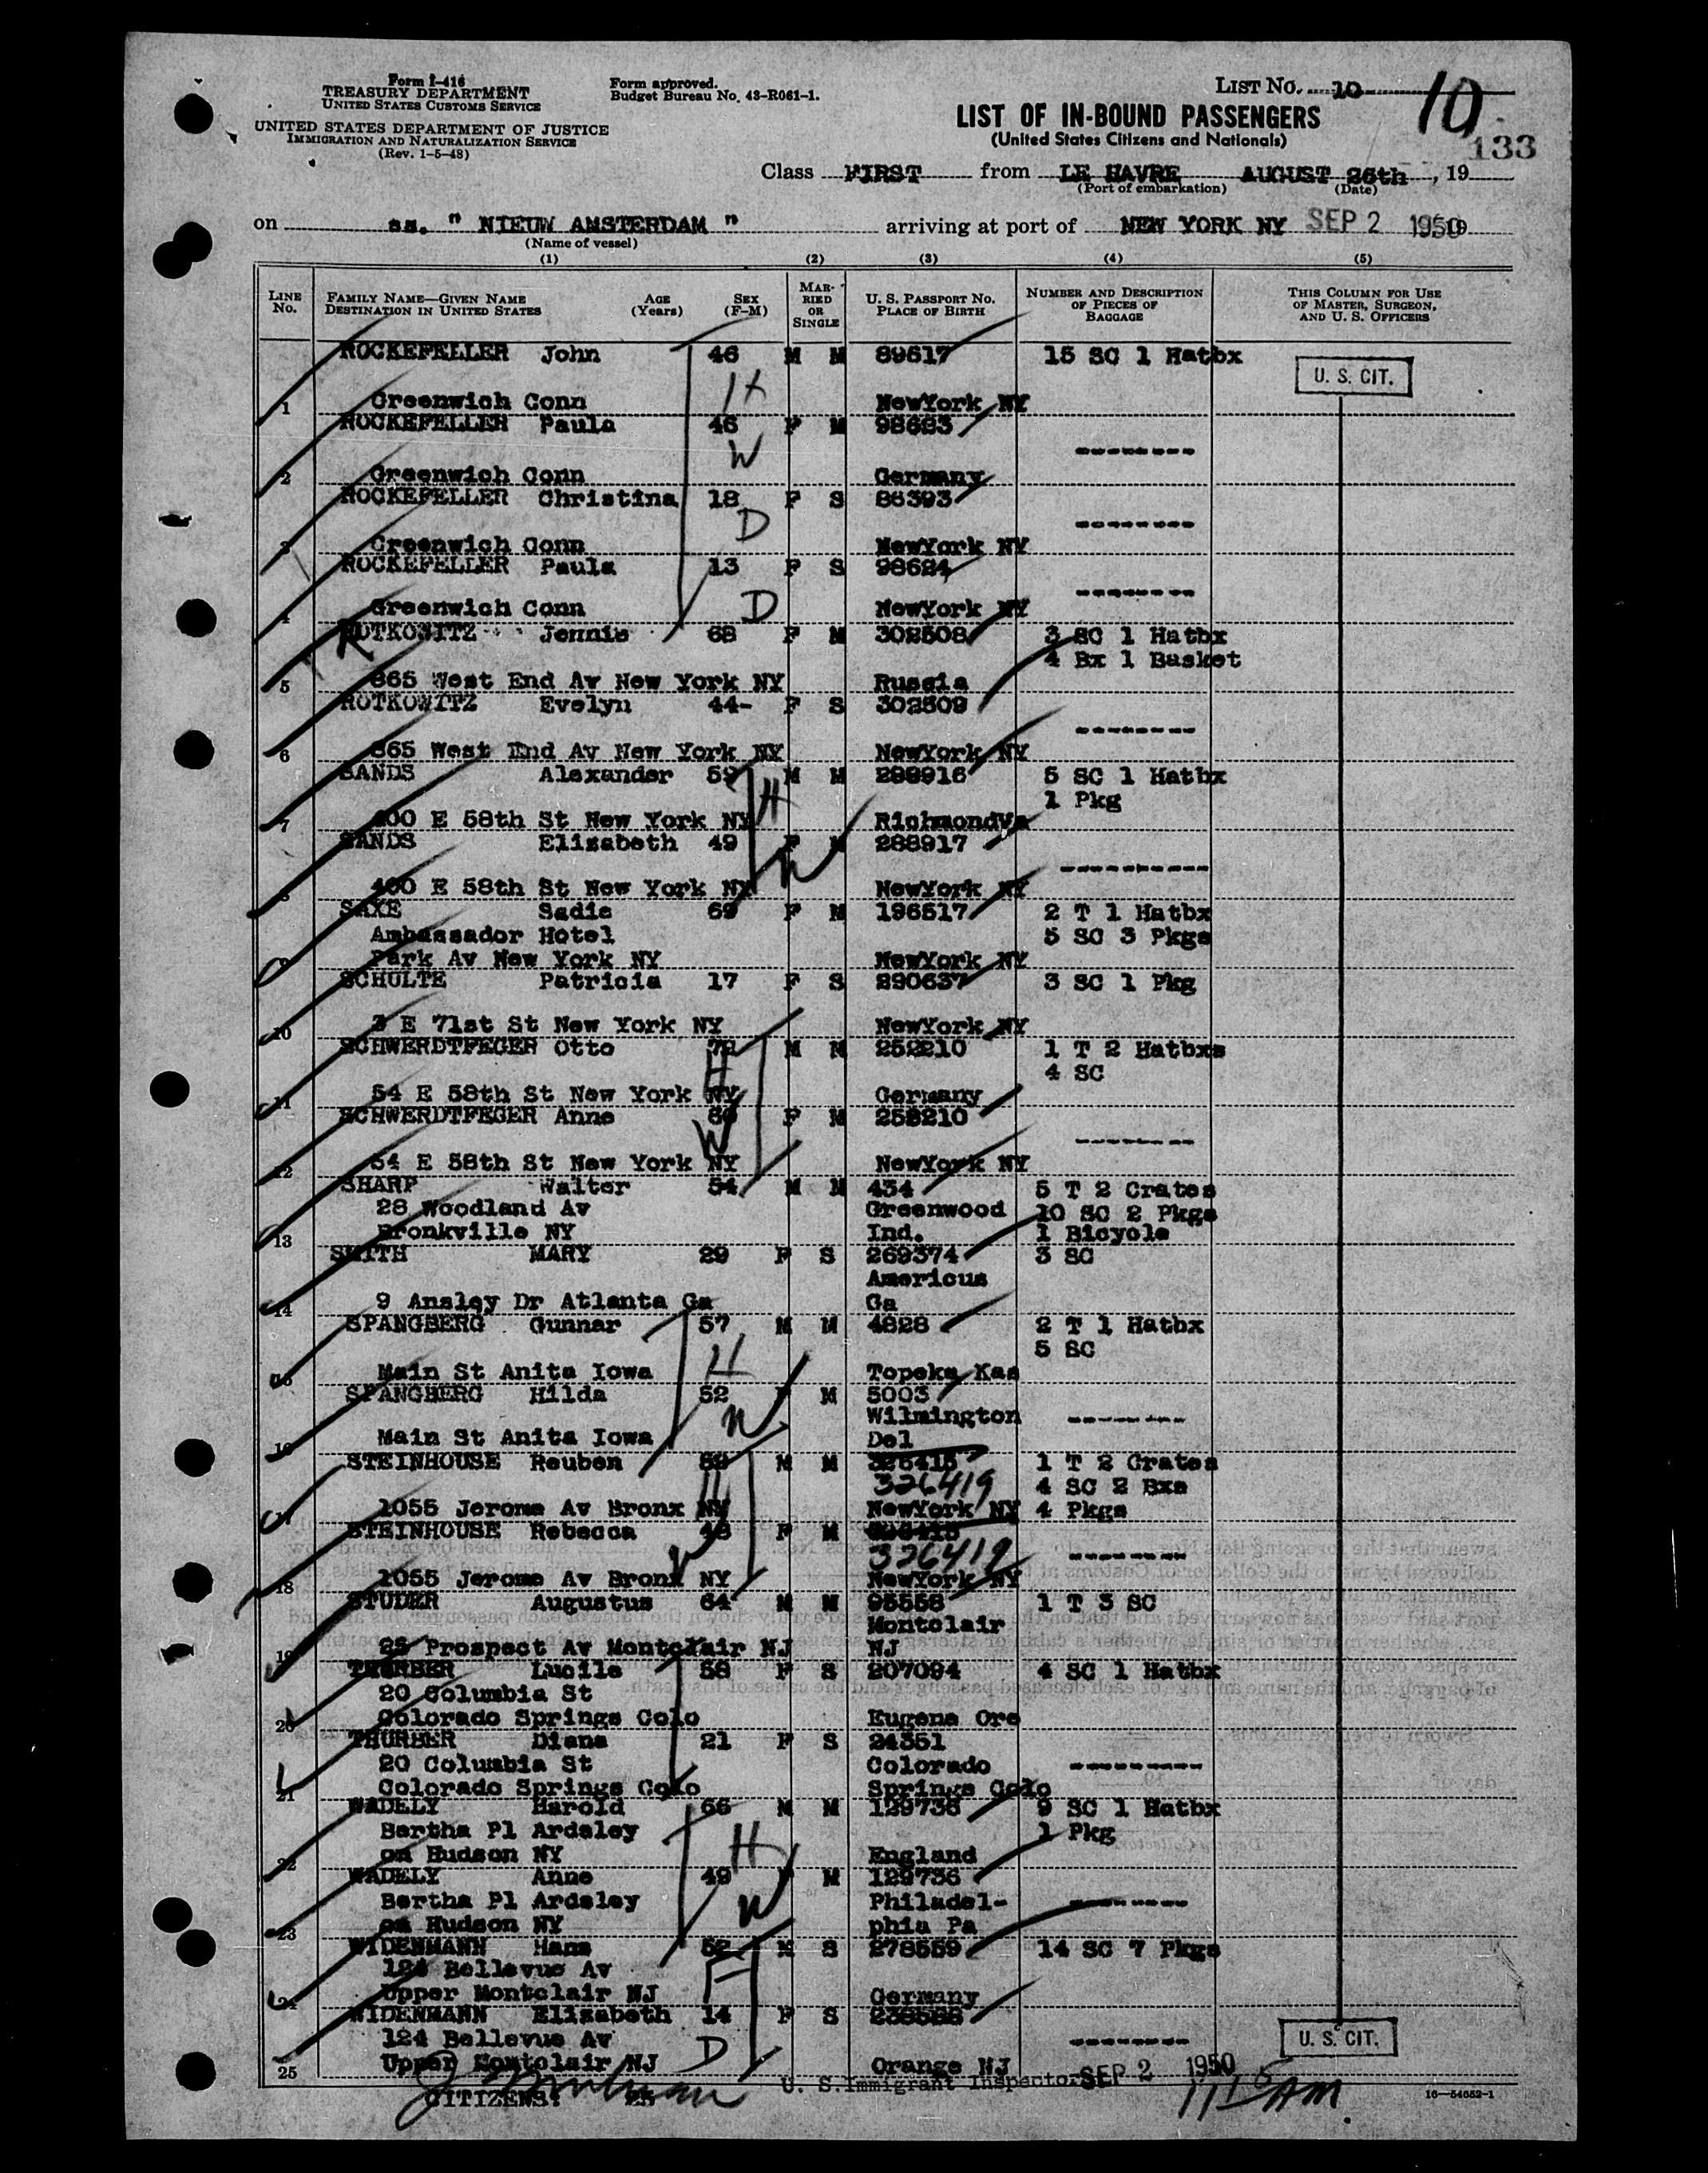 Form I-416
TREASURY DEPARTMENT
UNITED STATES CUSTOMS SERVICE
UNITED STATES DEPARTMENT OF JUSTICE
IMMIGRATION AND NATURALIZATION SERVICE
(Rev. 1-5-48)
Form approved.
Budget Bureau No. 43-R061-1.
LIST No. 10
10
133
LIST OF IN-BOUND PASSENGERS
(United States Citizens and Nationals)
Class FIRST from LE HAVRE AUGUST 26th, 19
(Port of embarkation) (Date)
on ss. " NIEUW AMSTERDAM " arriving at port of NEW YORK NY SEP 2 1950 19
(Name of vessel)
(1) (2) (3) (4) (5)
LINE No. FAMILY NAME—GIVEN NAME DESTINATION IN UNITED STATES AGE (Years) SEX (F-M) MARRIED OR SINGLE U. S. PASSPORT No. PLACE OF BIRTH NUMBER AND DESCRIPTION OF PIECES OF BAGGAGE THIS COLUMN FOR USE OF MASTER, SURGEON, AND U. S. OFFICERS
ROCKEFELLER John 46 M M 89617 15 SC 1 Hatbx
U. S. CIT.
H
1 Greenwich Conn NewYork NY
ROCKEFELLER Paula 46 F M 98683
W
2 Greenwich Conn Germany
ROCKEFELLER Christina 18 F S 86393
D
3 Greenwich Conn NewYork NY
ROCKEFELLER Paula 13 F S 98684
4 Greenwich Conn D NewYork NY
ROTKOWITZ Jennie 68 F M 302508 3 SC 1 Hatbx
4 Bx 1 Basket
5 865 West End Av New York NY Russia
ROTKOWITZ Evelyn 44- F S 302509
6 865 West End Av New York NY NewYork NY
SANDS Alexander 59 M M 288916 5 SC 1 Hatbx
H 1 Pkg
7 400 E 58th St New York NY RichmondVa
SANDS Elizabeth 49 F M 288917
W
8 400 E 58th St New York NY NewYork NY
SAXE Sadie 69 F M 196517 2 T 1 Hatbx
Ambassador Hotel 5 SC 3 Pkgs
9 Park Av New York NY NewYork NY
SCHULTE Patricia 17 F S 290637 3 SC 1 Pkg
10 3 E 71st St New York NY NewYork NY
SCHWERDTFEGER Otto 72 M M 252210 1 T 2 Hatbxs
H 4 SC
11 54 E 58th St New York NY Germany
SCHWERDTFEGER Anne F M 252210
W
12 54 E 58th St New York NY NewYork NY
SHARP Walter 54 M M 434 5 T 2 Crates
28 Woodland Av Greenwood 10 SC 2 Pkgs
13 Bronkville NY Ind. 1 Bicycle
SMITH MARY 29 F S 269374 3 SC
Americus
14 9 Ansley Dr Atlanta Ga Ga
SPANGBERG Gunnar 57 M M 4828 2 T 1 Hatbx
H 5 SC
15 Main St Anita Iowa Topeka Kas
SPANGBERG Hilda 52 F M 5003
W Wilmington
16 Main St Anita Iowa Del
STEINHOUSE Reuben 59 M M 326415 1 T 2 Crates
H 326419 4 SC 2 Bxs
17 1055 Jerome Av Bronx NY NewYork NY 4 Pkgs
STEINHOUSE Rebecca 48 F M
W 326419
18 1055 Jerome Av Bronx NY NewYork NY
STUDER Augustus 64 M M 95558 1 T 3 SC
Montclair
19 25 Prospect Av Montclair NJ NJ
THURBER Lucile 58 F S 207094 4 SC 1 Hatbx
20 Columbia St
20 Colorado Springs Colo Eugene Ore
THURBER Diana 21 F S 24351
20 Columbia St Colorado
21 Colorado Springs Colo Springs Colo
WADELY Harold 66 M M 129736 9 SC 1 Hatbx
Bertha Pl Ardsley H 1 Pkg
22 on Hudson NY England
WADELY Anne 49 F M 129736
Bertha Pl Ardsley W Philadel-
23 on Hudson NY phia Pa
WIDENMANN Hans 52 M S 278559 14 SC 7 Pkgs
124 Bellevue Av F
24 Upper Montclair NJ Germany
WIDENMANN Elizabeth 14 F S
124 Bellevue Av U. S. CIT.
25 Upper Montclair NJ D Orange NJ
U. S. Immigrant Inspector SEP 2 1950
CITIZENS: 25 AM
16—54652-1